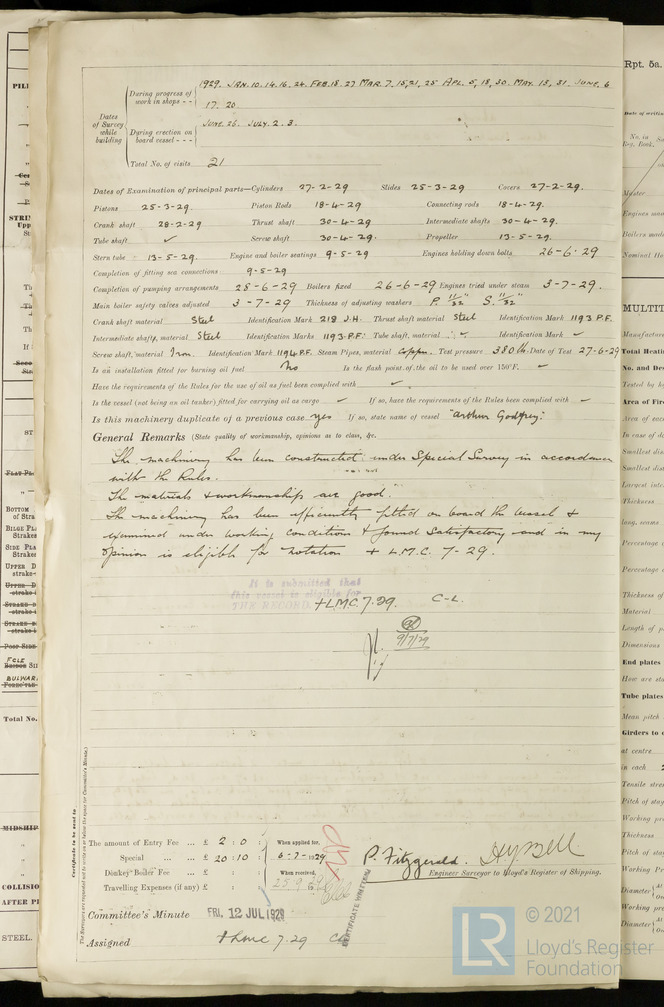 1929. JAN. 10. 14. 16. 24. FEB. 18. 27 MAR. 7, 15, 21, 25 APL. 5, 18, 30. MAY. 15, 31. JUNE. 6
During progress of work in shops - -
17. 20.
Dates of Survey while building
During erection on board vessel - - -
JUNE. 26. JULY. 2. 3.
Total No. of visits 21
Dates of Examination of principal parts—Cylinders 27-2-29 Slides 25-3-29 Covers 27-2-29.
Pistons 25-3-29. Piston Rods 18-4-29 Connecting rods 18-4-29.
Crank shaft 28-2-29 Thrust shaft 30-4-29 Intermediate shafts 30-4-29.
Tube shaft ✓ Screw shaft 30-4-29. Propeller 13-5-29.
Stern tube 13-5-29. Engine and boiler seatings 9-5-29 Engines holding down bolts 26-6-29
Completion of fitting sea connections 9-5-29
Completion of pumping arrangements 28-6-29 Boilers fixed 26-6-29 Engines tried under steam 3-7-29.
Main boiler safety valves adjusted 3-7-29 Thickness of adjusting washers P. 11/32" S. 11/32"
Crank shaft material Steel Identification Mark 218 J.H. Thrust shaft material Steel Identification Mark 1193 P.F.
Intermediate shafts, material Steel Identification Marks 1193 P.F. Tube shaft, material ✓ Identification Mark ✓
Screw shaft, material Iron. Identification Mark 1194 P.F. Steam Pipes, material Copper. Test pressure 380 lb. Date of Test 27-6-29
Is an installation fitted for burning oil fuel No Is the flash point of the oil to be used over 150°F. ✓
Have the requirements of the Rules for the use of oil as fuel been complied with ✓
Is the vessel (not being an oil tanker) fitted for carrying oil as cargo ✓ If so, have the requirements of the Rules been complied with ✓
Is this machinery duplicate of a previous case yes If so, state name of vessel "Arthur Godfrey."
General Remarks (State quality of workmanship, opinions as to class, &c.
The machinery has been constructed under Special Survey in accordance
with the Rules.
The materials & workmanship are good.
The machinery has been efficiently fitted on board the vessel &
examined under working conditions & found satisfactory and in my
opinion is eligible for notation + L.M.C. 7-29.
It is submitted that
this vessel is eligible for
THE RECORD. + LMC. 7.29. C-L.
9/7/29
The amount of Entry Fee ... £ 2 : 0
Special ... ... £ 20 : 10
Donkey Boiler Fee ... £ : :
Travelling Expenses (if any) £ : :
When applied for,
6-7-1929
When received,
P. Fitzgerald.
Engineer Surveyor to Lloyd's Register of Shipping.
Committee's Minute FRI. 12 JUL 1929
Assigned + LMC 7.29
CERTIFICATE WRITTEN
Certificate to be sent to
(The Surveyors are requested not to write on or below the space for Committee's Minute.)
Rpt. 5a.
MULTIT
Total Heati
No. and De
Area of Fir
End plates
Tube plates
Girders to c
at centre
in each
Total No.
MIDSHIP
COLLISIO
AFTER P
STEEL.
LR
© 2021
Lloyd's Register
Foundation